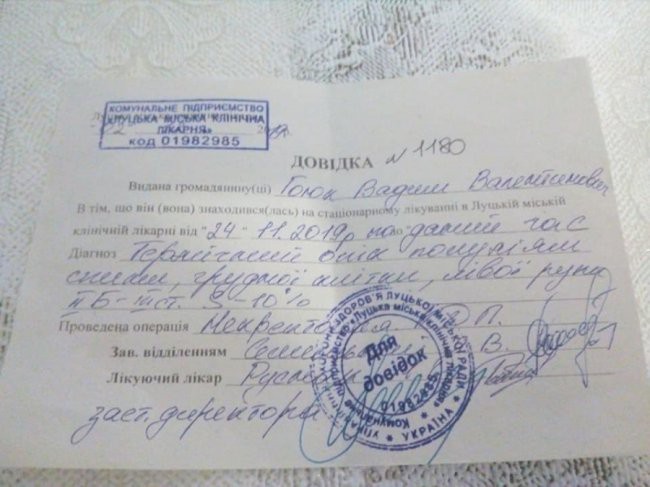 КОМУНАЛЬНЕ ПІДПРИЄМСТВО
«ЛУЦЬКА МІСЬКА КЛІНІЧНА
ЛІКАРНЯ»
код 01982985
ДОВІДКА N 1180
Видана громадянину(ці) Гоюк Вадим Валентинович
В тім, що він (вона) знаходився(лась) на стаціонарному лікуванні в Луцькій міській
клінічній лікарні від "24" 11.2019р по даний час
Діагноз Термічний опік полум'ям
спини, грудної клітки, лівої руки
ІІБ-ІІІ ст. S-10%
Проведена операція
Зав. відділенням
Лікуючий лікар
заст. директора
Для довідок
Комунальне підприємство «Луцька міська клінічна лікарня»
01982985
УКРАЇНА